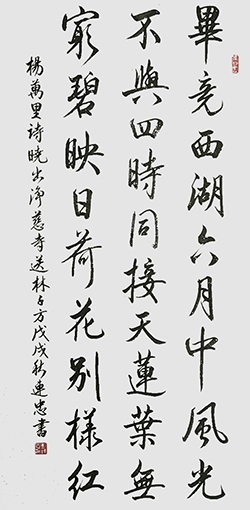 畢竟西湖六月中風光
不與四時同接天蓮葉無
窮碧映日荷花別樣紅
楊萬里詩曉出淨慈寺送林子方戊戌秋連忠書